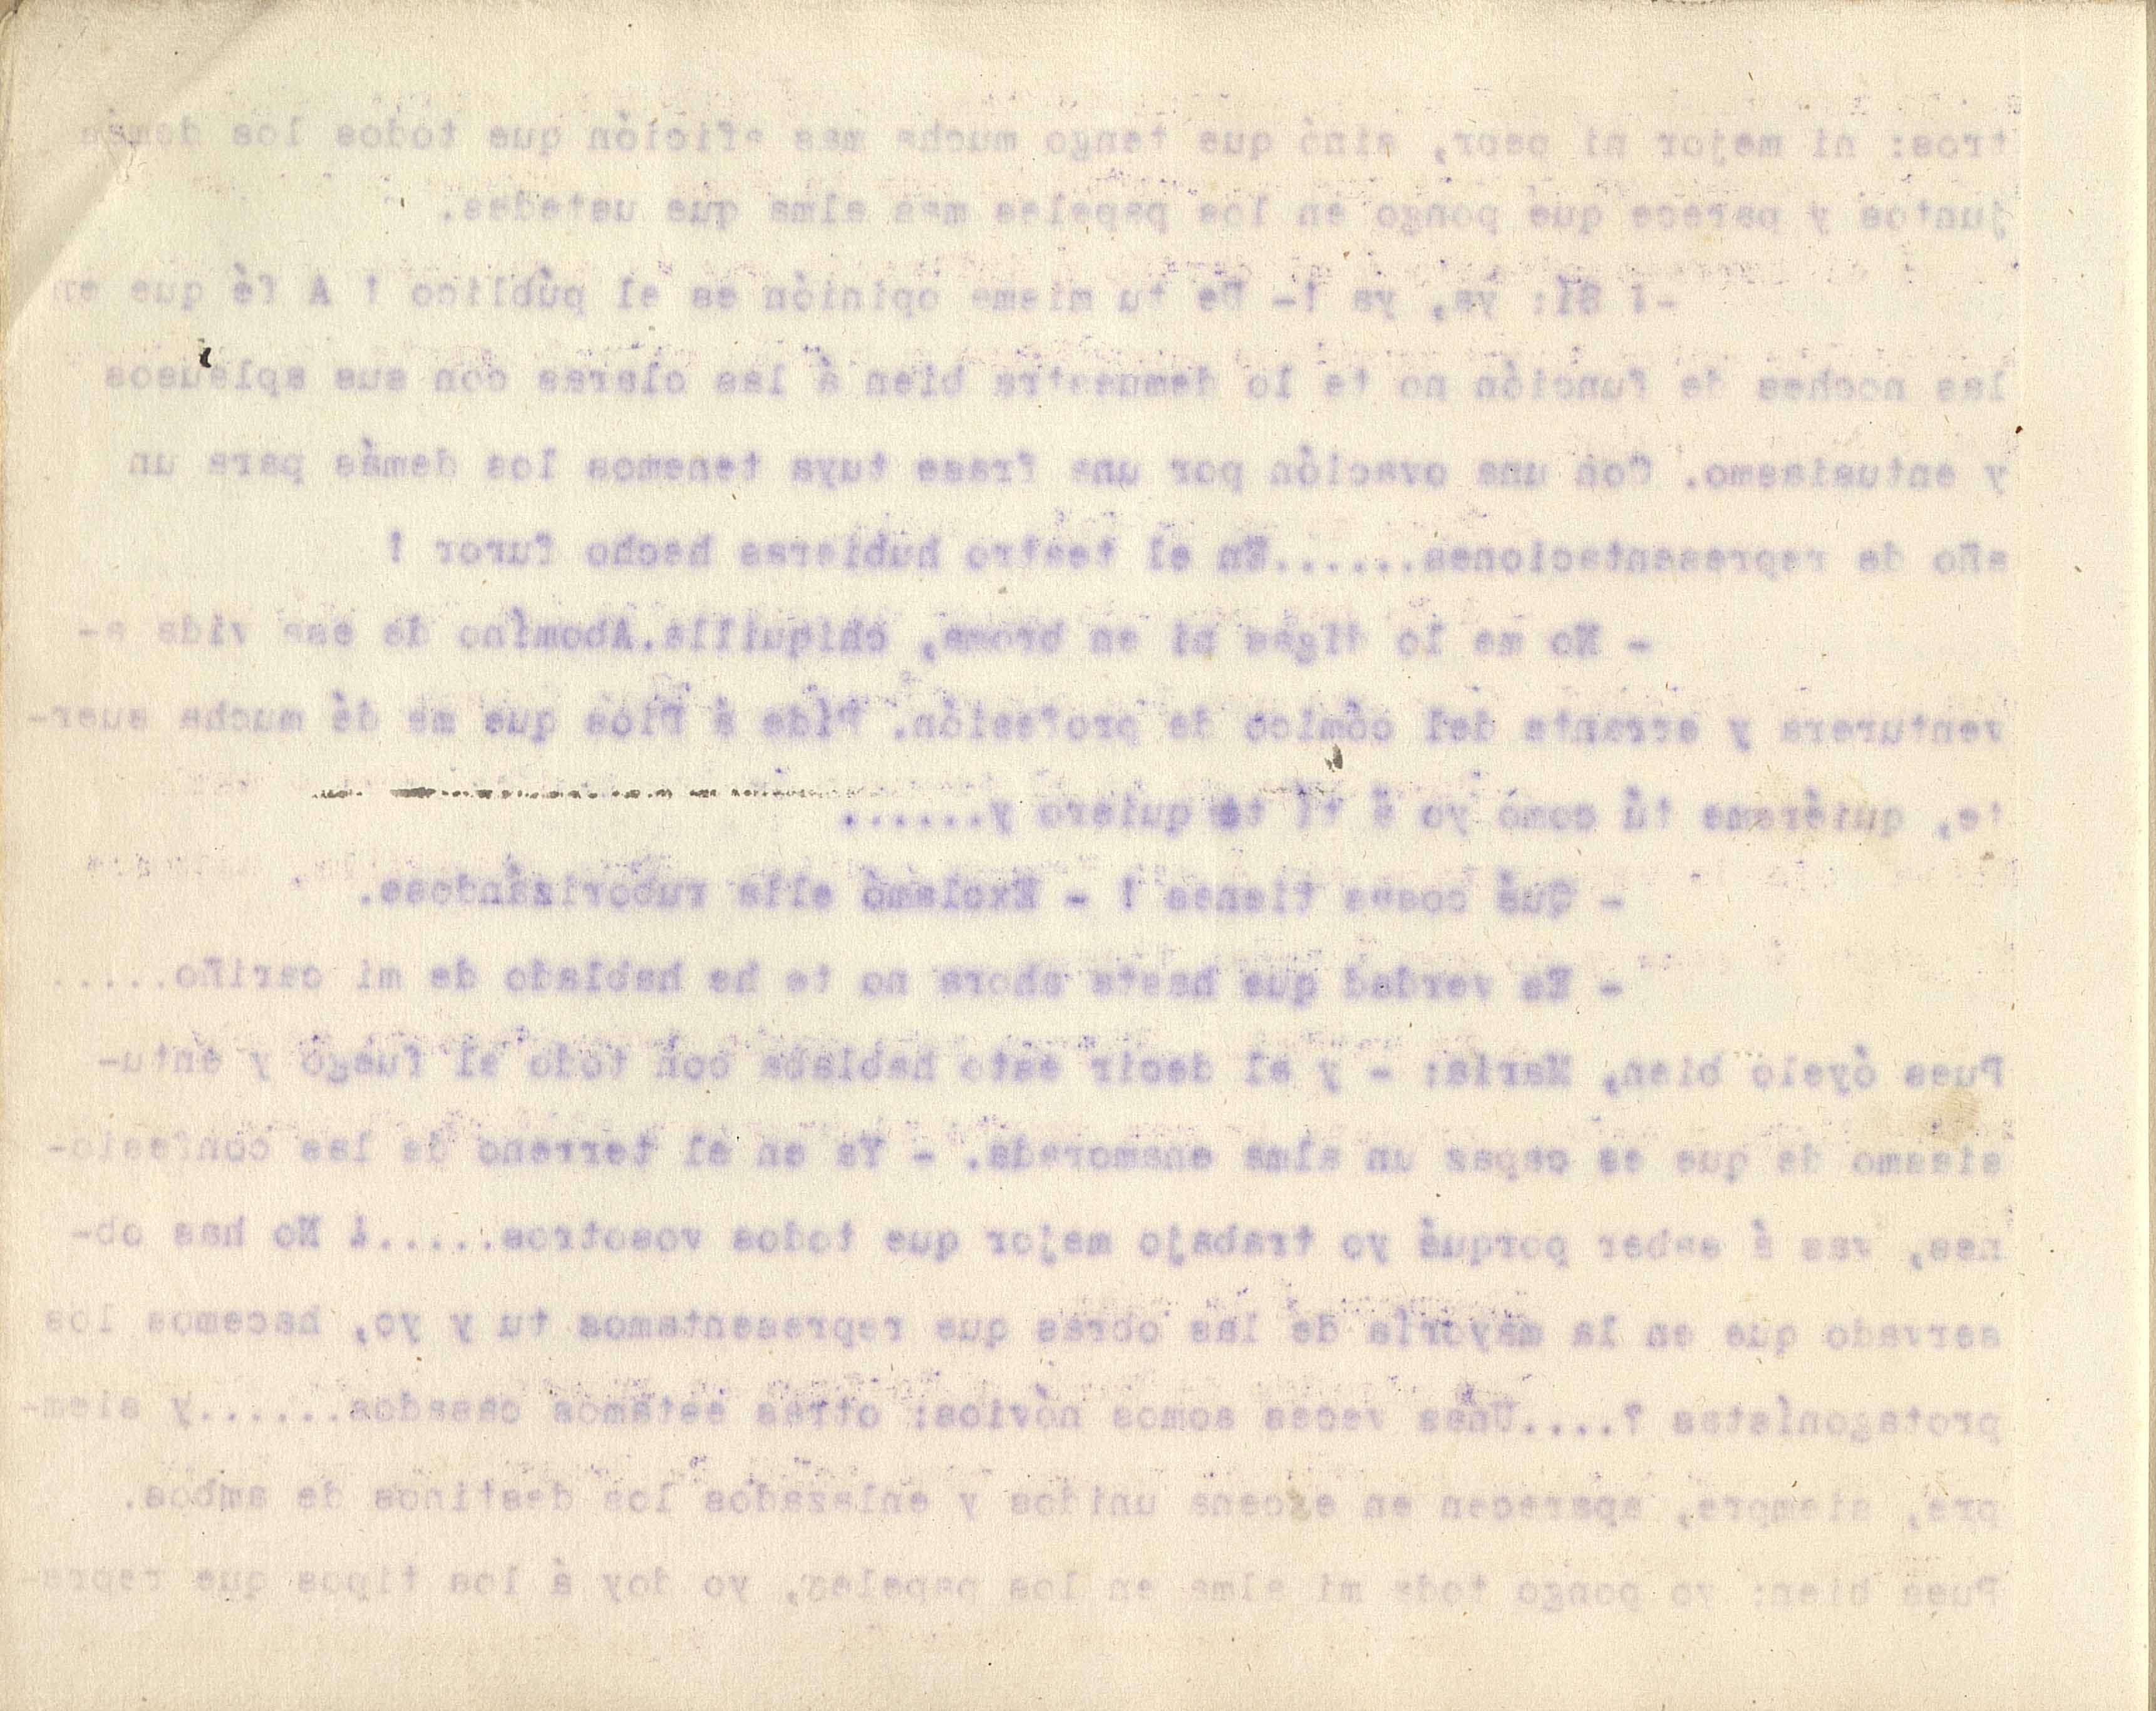 tros: ni mejor ni peor, sinó que tengo mucha mas afición que todos los demás
juntos y parece que pongo en los papeles mas alma que ustedes.
-¡ Sí: ya, ya !- De tu misma opinión es el público ! A fé que en
las noches de función no te lo demuestra bien á las claras con sus aplausos
y entusiasmo. Con una ovación por una frase tuya tenemos los demás para un
año de representaciones.......En el teatro hubieras hecho furor !
- No me lo digas ni en broma, chiquilla.Abomíno de esa vida a-
venturera y errante del cómico de profesión. Píde á Dios que me dé mucha suer-
te, quiéreme tú como yo á tí te quiero y.......
- Qué cosas tienes ! - Exclamó ella ruborizándose.
- Es verdad que hasta ahora no te he hablado de mi cariño.....
Pues óyelo bien, María: - y al decir ésto hablaba con todo el fuego y entu-
siasmo de que es capaz un alma enamorada. - Ya en el terreno de las confesio-
nes, vas á saber porqué yo trabajo mejor que todos vosotros......¿ No has ob-
servado que en la mayoría de las obras que representamos tu y yo, hacemos los
protagonístas ?....Unas veces somos nóvios: otras estamos casados.......y siem-
pre, siempre, aparecen en escena unidos y enlazados los destinos de ambos.
Pues bien: yo pongo toda mi alma en los papeles, yo doy á los tipos que repre-